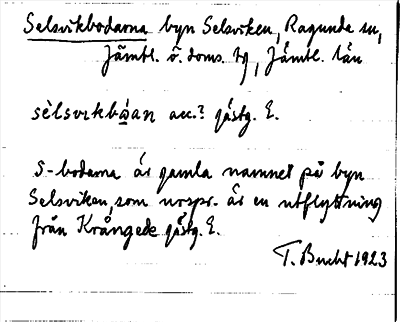 Selsvikbodarna byn Selsviken, Ragunda sn,
Jämtl. ö. doms. tg, Jämtl. län
sèlsvikbá̱an acc.? gästg. E.
S-bodarna är gamla namnet på byn
Selsviken, som urspr. är en utflyttning
från Krångede gästg. E.
T. Bucht 1923